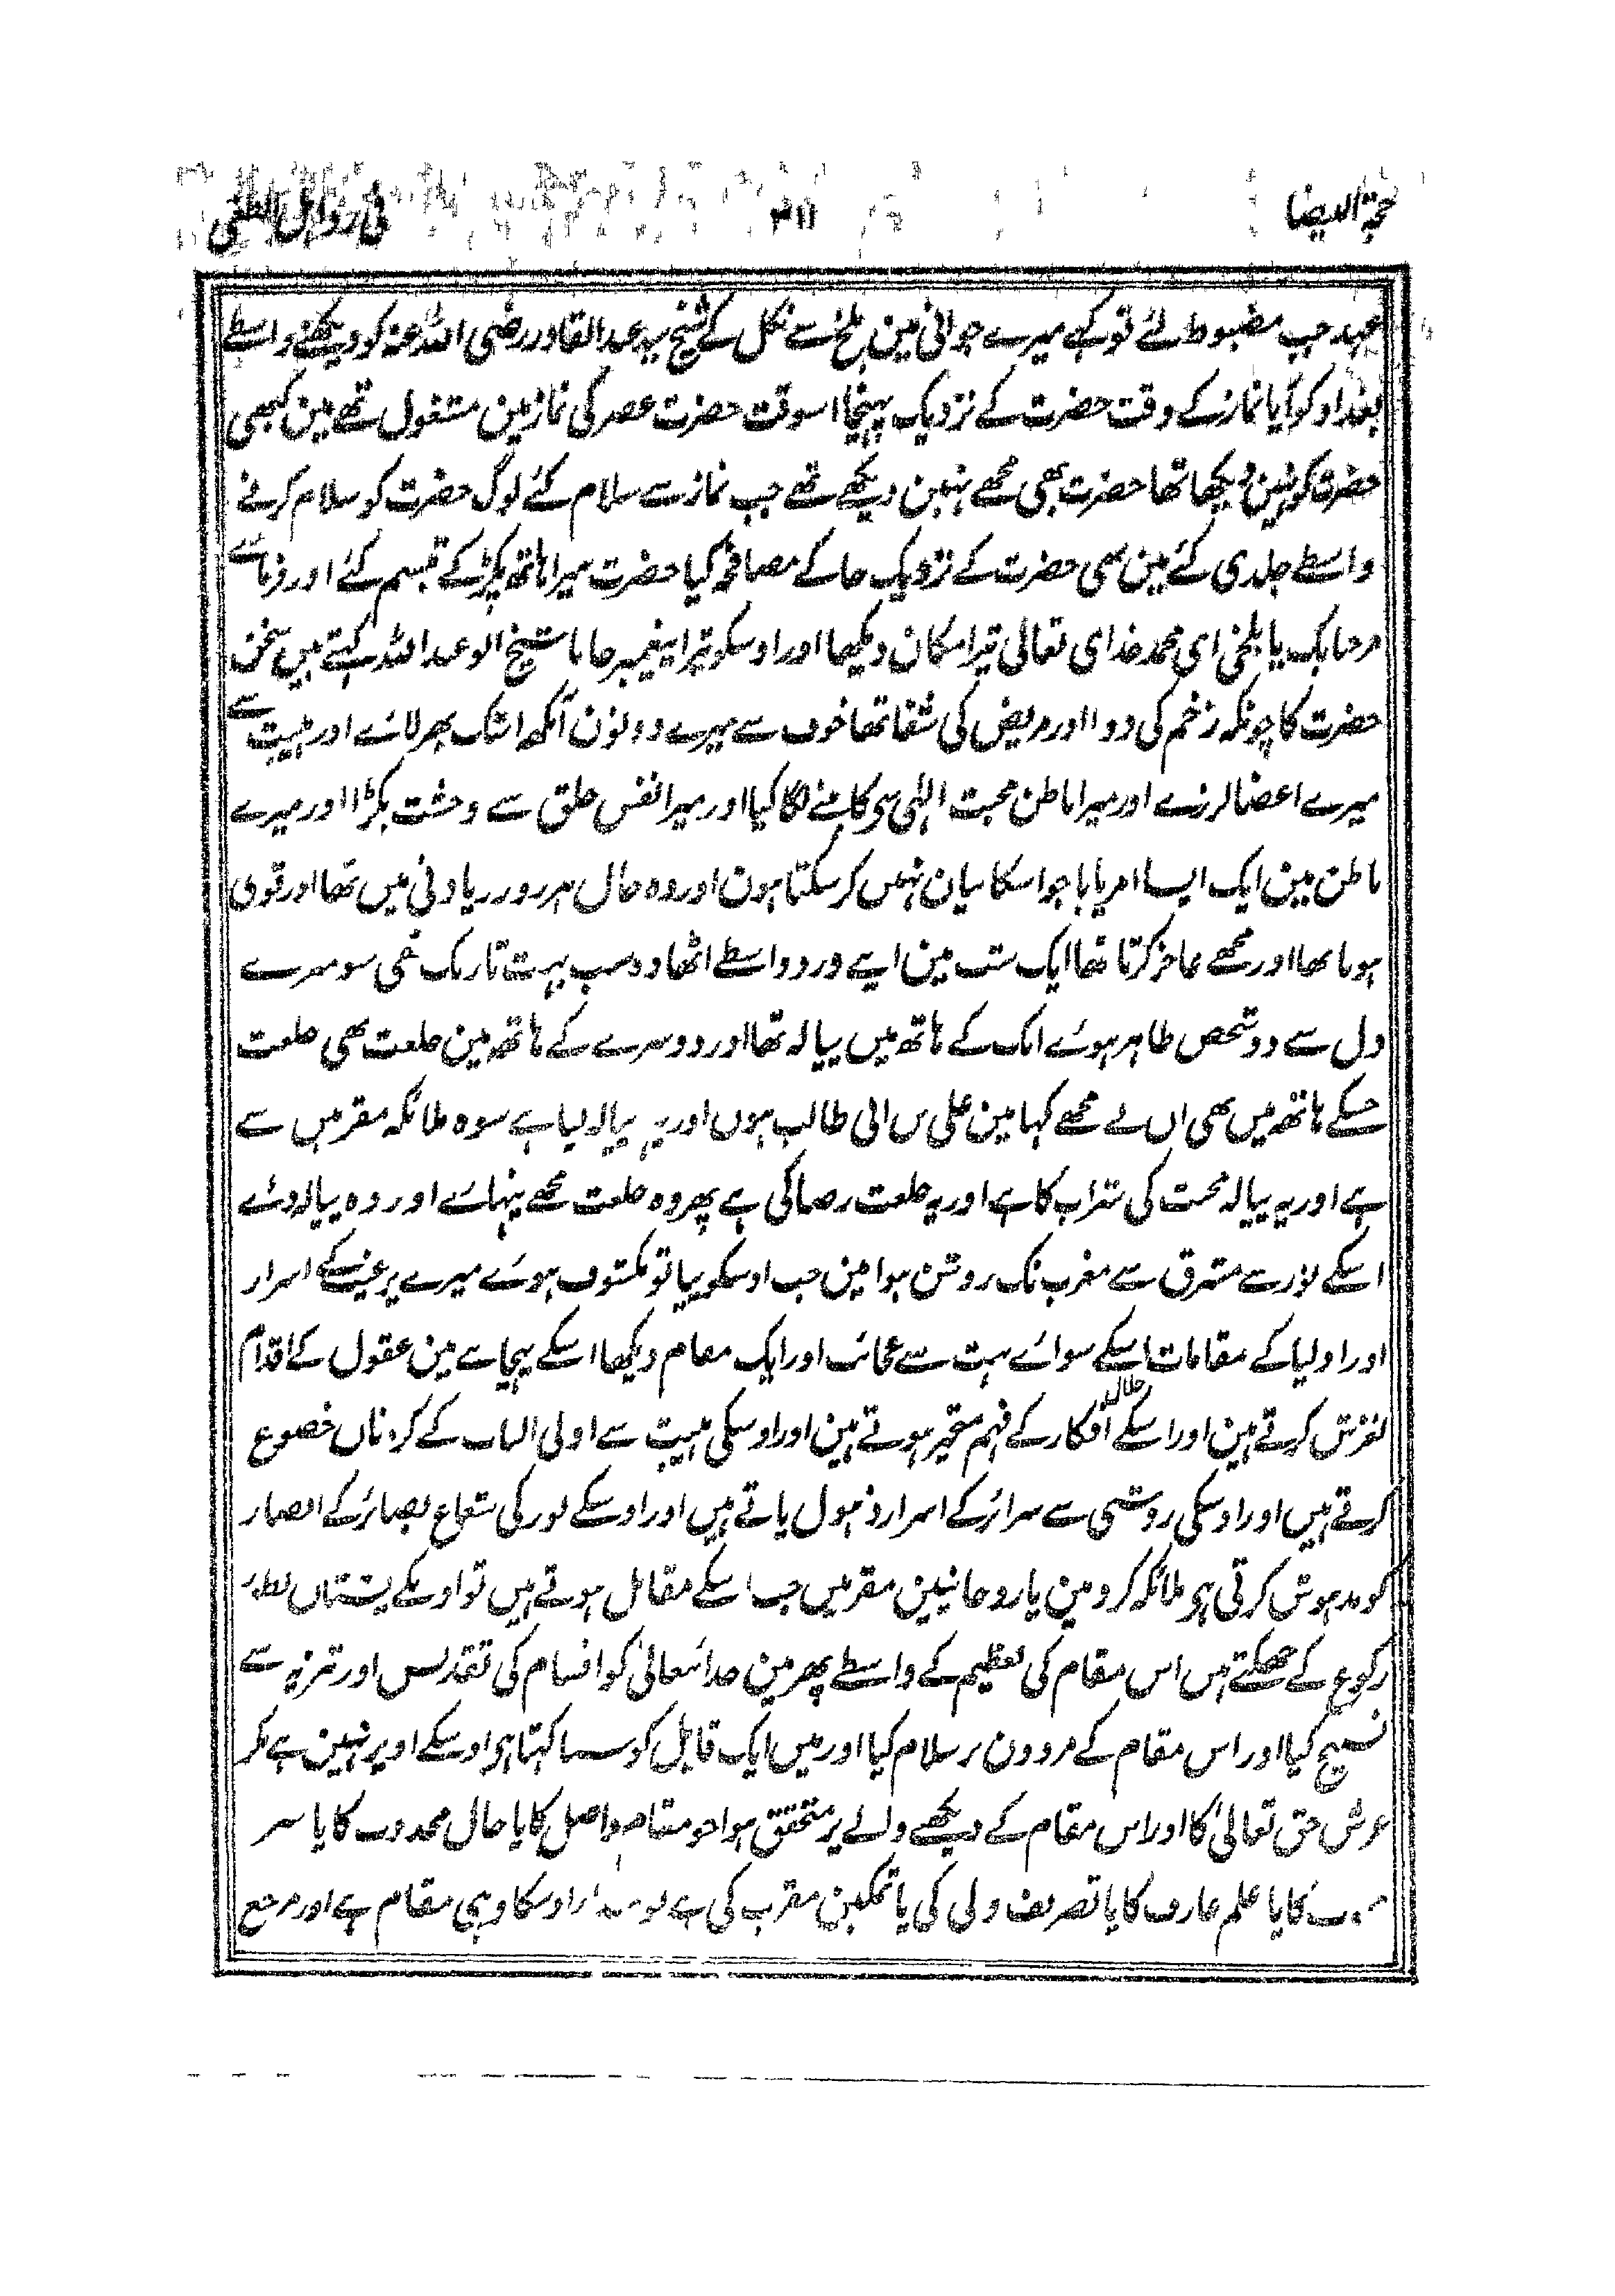 حجۃ البیضا ۳۱۱
عہد جب مضبوط لئے تو کہے میرے جوانی مین بلخ سے نکل کے شیخ سید عبد القادر رضی اللہ عنہ کو دیکہنے واسطے
بغداد کو آیا نماز کے وقت حضرت کے نزدیک پہنچا اسوقت حضرت عصر کی نماز مین مشغول تھے مین کبھی
حضرت کو نہین دیکھا تھا حضرت بھی مجھے نہین دیکھے تھے جب نماز سے سلام کئے لوگ حضرت کو سلام کرنے
واسطے جلدی کئے مین بھی حضرت کے نزدیک جا کے مصافحہ کیا حضرت میرا ہاتھ پکڑ کے تبسم کئے اور فرمائے
مرحبا بک یا بلخی ای محمد خدای تعالی تیرا مکان دیکھا اور اوسکو تیرا پیغمبر جانا شیخ ابو عبد اللہ کہتے ہیں سخن
حضرت کا چونکہ زخم کی دوا اور مریض کی شفا تھا خوف سے میرے دونون آنکھ اشک بھر لائے اور ہیبت سے
میرے اعضا لرزے اور میرا باطن محبت الہٰی سی کانپنے لگا کیا اور میرا نفس خلق سے وحشت پکڑا اور میرے
باطن مین ایک ایسا امر پایا جو اسکا بیان نہیں کر سکتا ہون اور وہ حال ہر روز زیادتی میں تھا اور قوی
ہوتا تھا اور مجھے عاجز کرتا تھا ایک شب مین اپے ورد واسطے اٹھا وہ شب بہت تاریک تھی سو میرے
دل سے دو شخص ظاہر ہوئے ایک کے ہاتھ میں پیالہ تھا اور دوسرے کے ہاتھ مین خلعت تھی خلعت
جسکے ہاتھ میں تھی ان نے مجھے کہا مین علی بن ابی طالب ہوں اور یہ پیالہ لیا ہے سو وہ ملائکہ مقربیں سے
ہے اور یہ پیالہ محبت کی شراب کا ہے اور یہ خلعت رضا کی ہے پھر وہ خلعت مجھے پنہائے اور وہ پیالہ دئے
اسکے نور سے مشرق سے مغرب تک روشن ہوا مین جب اوسکو پیا تو مکشوف ہوئے میرے پر غیب کے اسرار
اور اولیا کے مقامات اسکے سوائے بہت سے عجائب اور ایک مقام دیکھا اسکے پہچا سے مین عقول کے اقدام
لغزش کرتے ہین اور اسکے جلال افکار کے فہم متحیر ہوتے ہین اور اوسکی ہیبت سے اولی الباب کے گردناں خضوع
کرتے ہیں اور اوسکی روشنی سے سرائر کے اسرار ذہول پاتے ہیں اور اوسکے نور کی شعاع بصائر کے ابصار
کو مدہوش کرتی ہی ملائکہ کروبین یا روحانیین مقربیں جب اسکے مقابل ہوتے ہیں تو اوسکے پشتاں بطور
رکوع کے جھکتے ہیں اس مقام کی تعظیم کے واسطے پھر مین خدائتعالیٰ کو اقسام کی تقدیس اور تنزیہ سے
تسبیح کیا اور اس مقام کے مردون پر سلام کیا اور میں ایک قایل کو سنا کہتا ہی اوسکے اوپر نہین ہے مگر
عرش حق تعالیٰ کا اور اس مقام کے دیکھے والے پر متحقق ہوا جو مقام واصل کا یا حال مجذوب کا یا سر
کا یا علم عارف کا یا تصریف ولی کی یا تمکین مقرب کی ہے اوسکا وہی مقام ہے اور مرجع